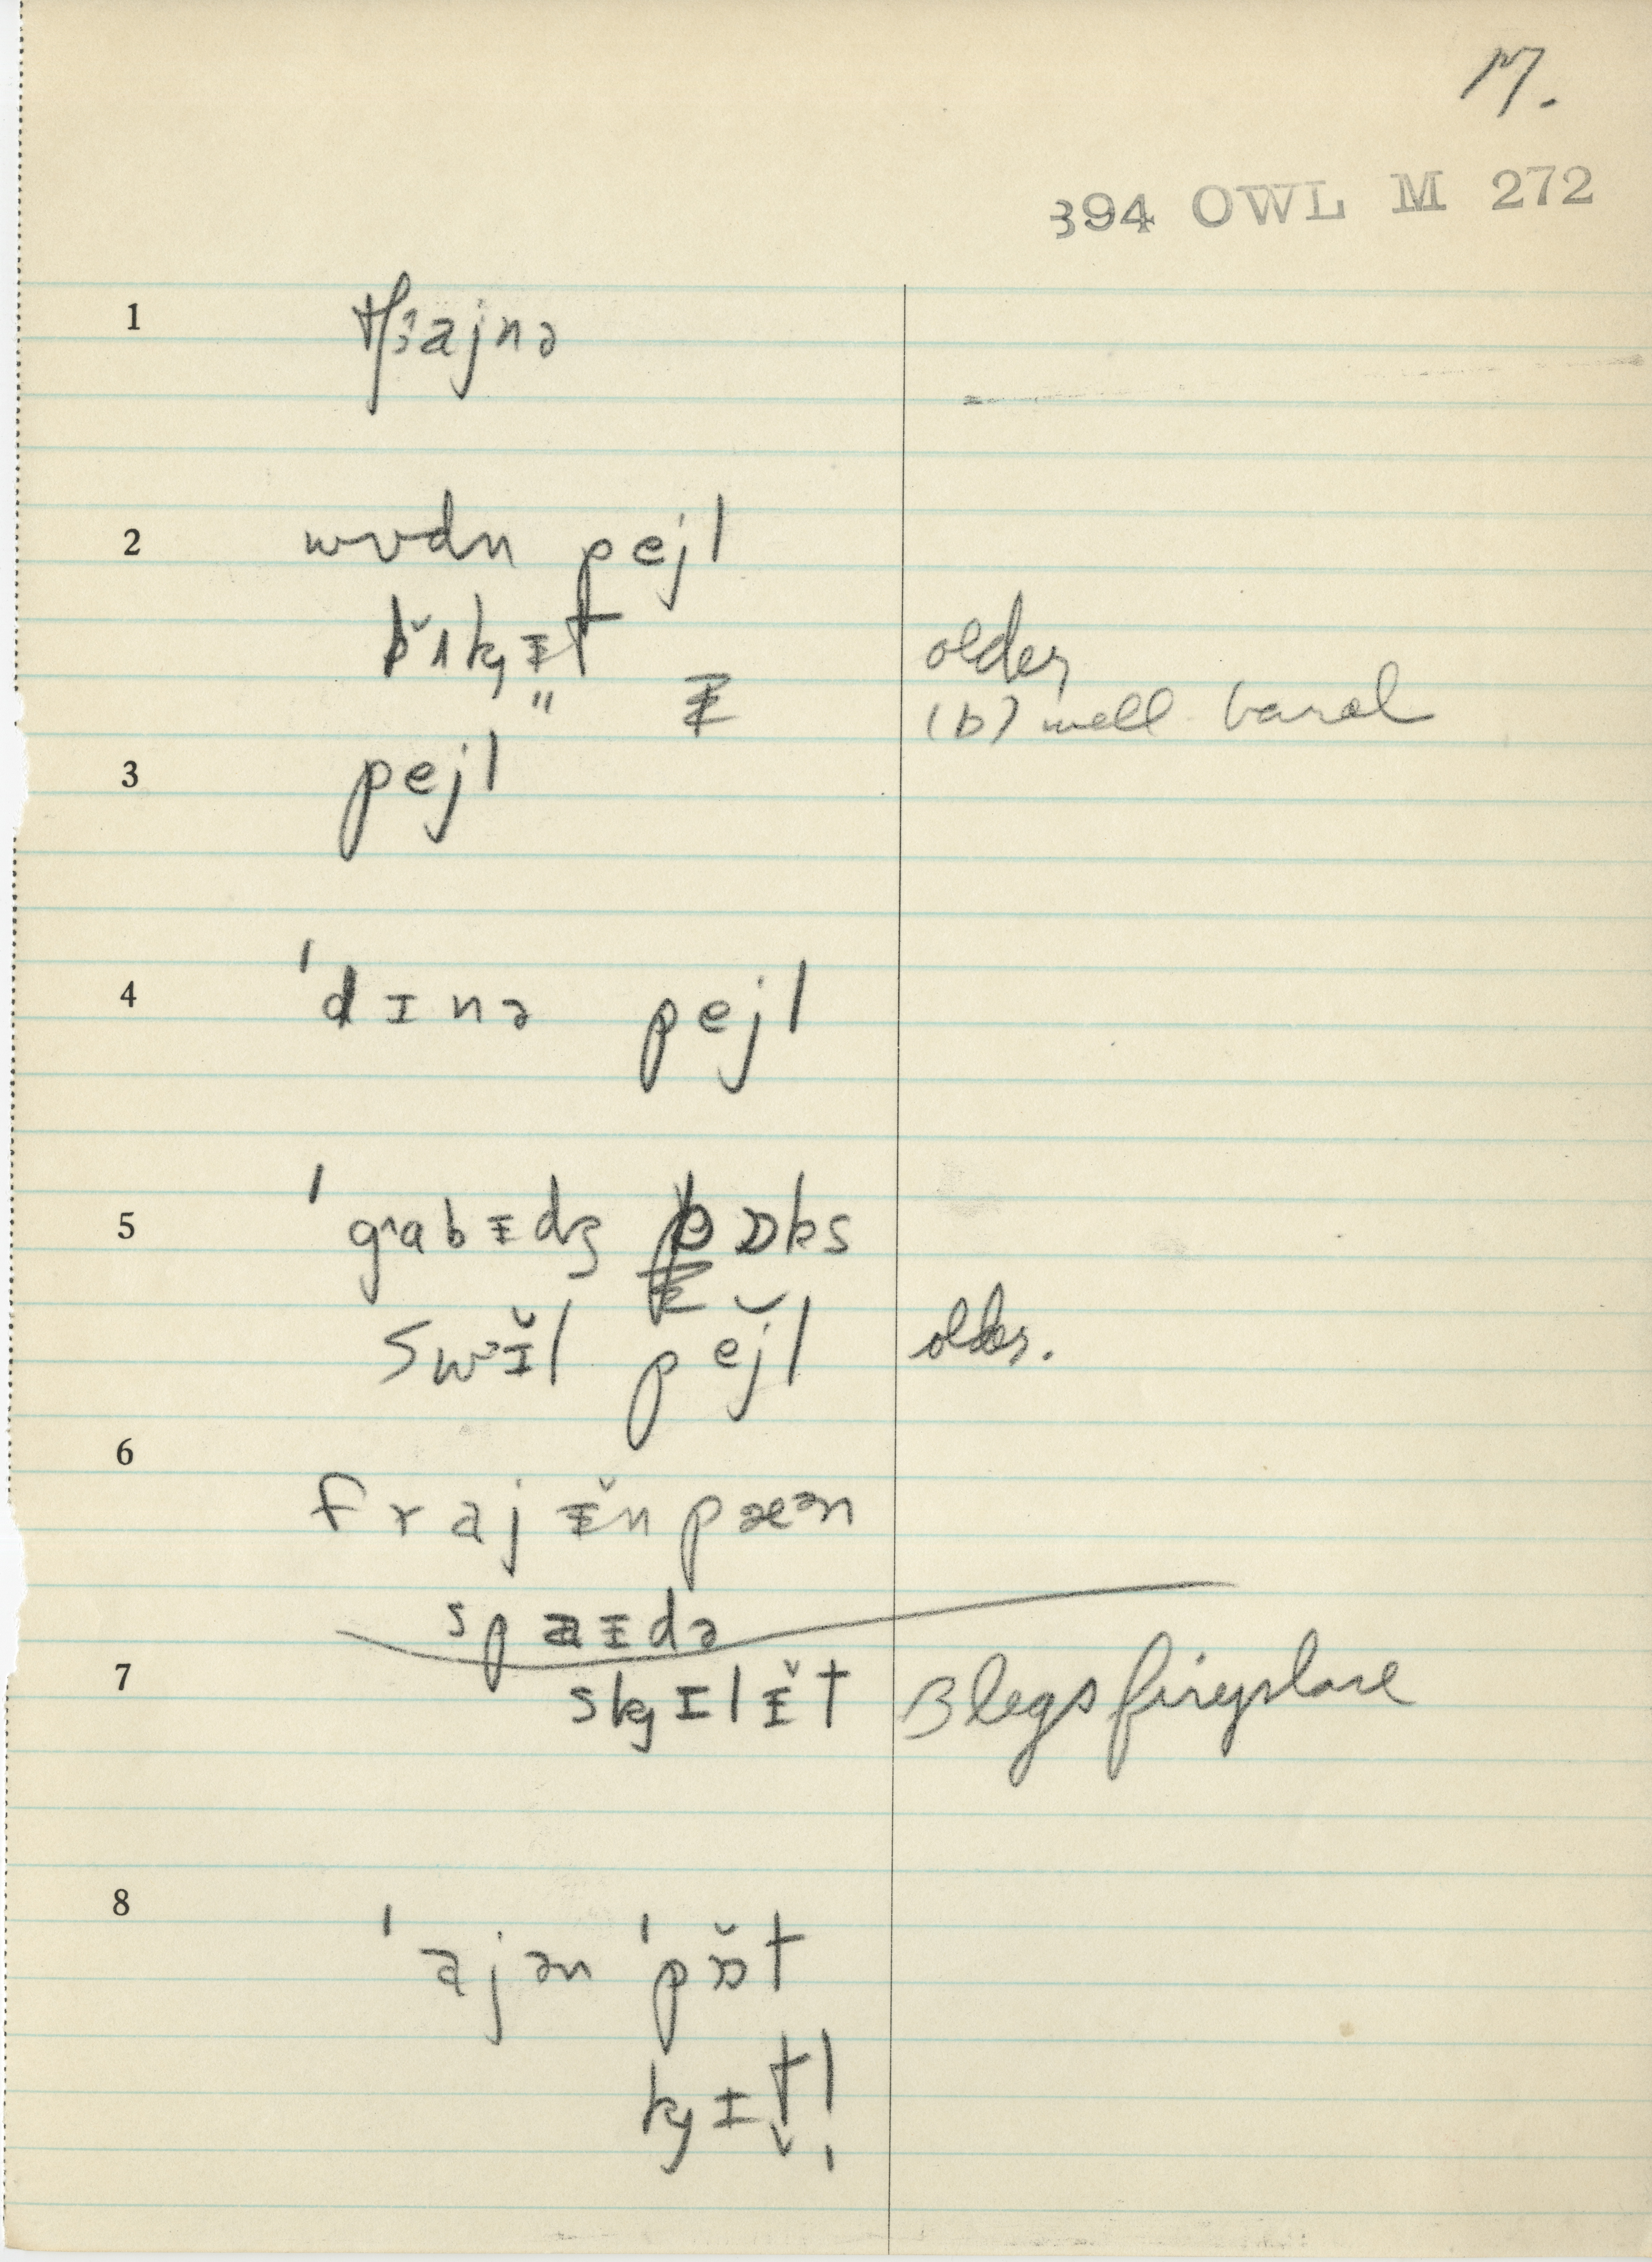 17.
394 OWL M 272
1 tʃɜajnə
2 wʊdn pejl
bʌkɪt older
" (b) well barrel
3 pejl
4 ˈdɪnə pejl
5 ˈgʌabɪdʒ bɒks
swɪ̆l pejl older.
6 frajɪ̆npæən
spaɪdə
7 skɪlɪ̆t 3 legs fireplace
8 ˈajən ˈpɒ̆t
kɪt̬l̩